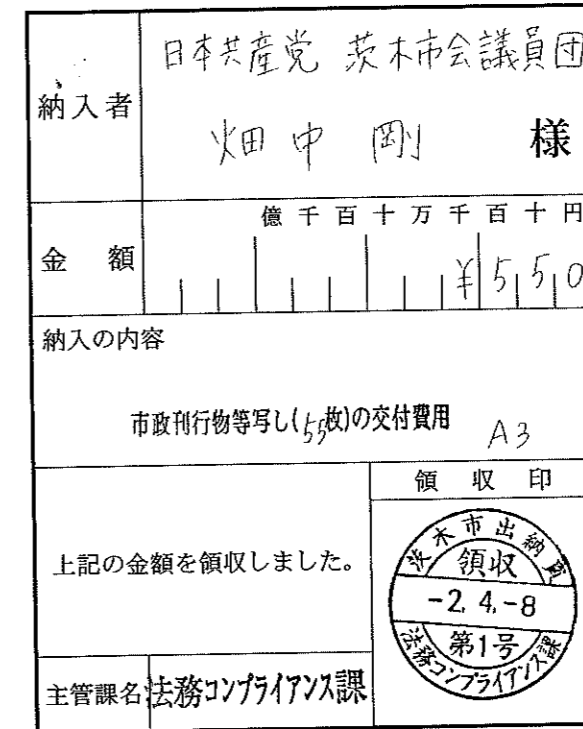 納入者
日本共産党 茨木市会議員団
畑中 剛 様
億千百十万千百十円
金額
¥550
納入の内容
市政刊行物等写し(55枚)の交付費用 A3
領収印
上記の金額を領収しました。
茨木市出納員
領収
-2.4.-8
第1号
法務コンプライアンス課
主管課名 法務コンプライアンス課